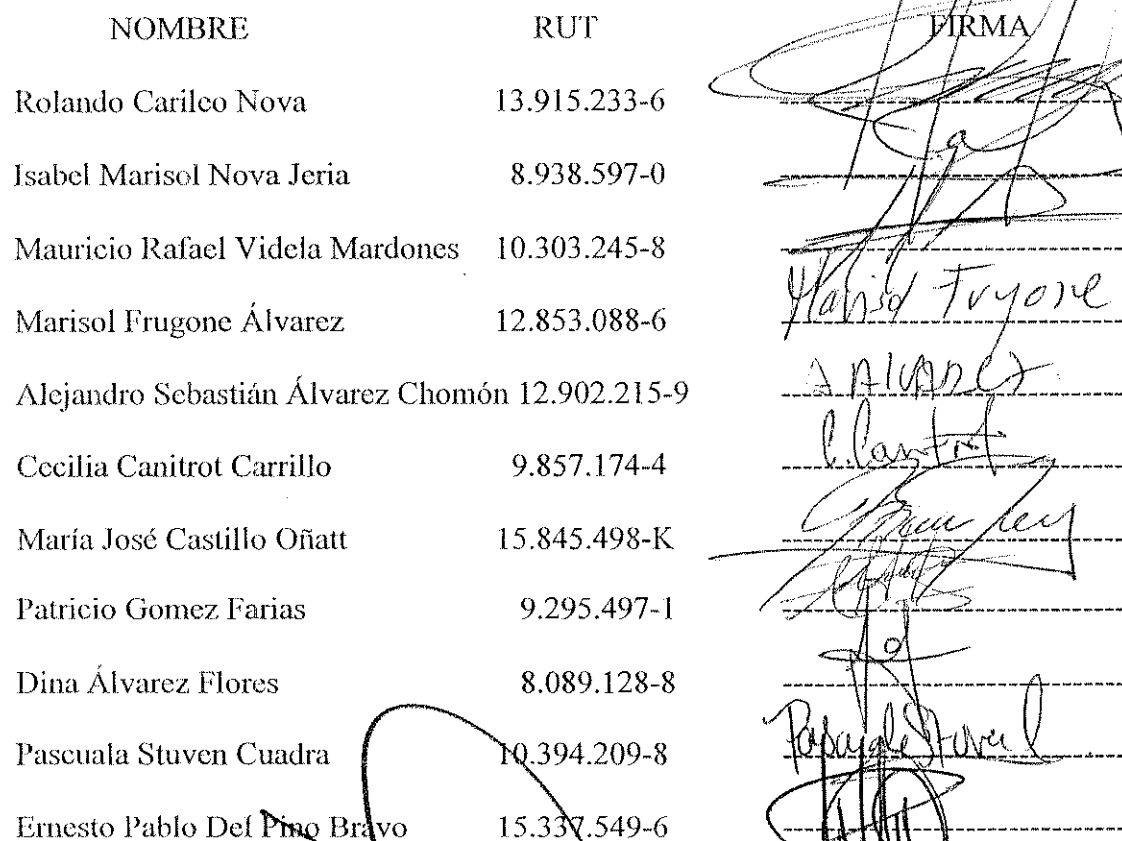 NOMBRE RUT FIRMA
Rolando Carilco Nova 13.915.233-6
Isabel Marisol Nova Jeria 8.938.597-0
Mauricio Rafael Videla Mardones 10.303.245-8
Marisol Frugone Álvarez 12.853.088-6 Marisol Frugone
Alejandro Sebastián Álvarez Chomón 12.902.215-9 A. ALVAREZ
Cecilia Canitrot Carrillo 9.857.174-4 C. Canitrot
María José Castillo Oñatt 15.845.498-K
Patricio Gomez Farias 9.295.497-1
Dina Álvarez Flores 8.089.128-8
Pascuala Stuven Cuadra 10.394.209-8 Pascuala Stuven
Ernesto Pablo Del Pino Bravo 15.337.549-6